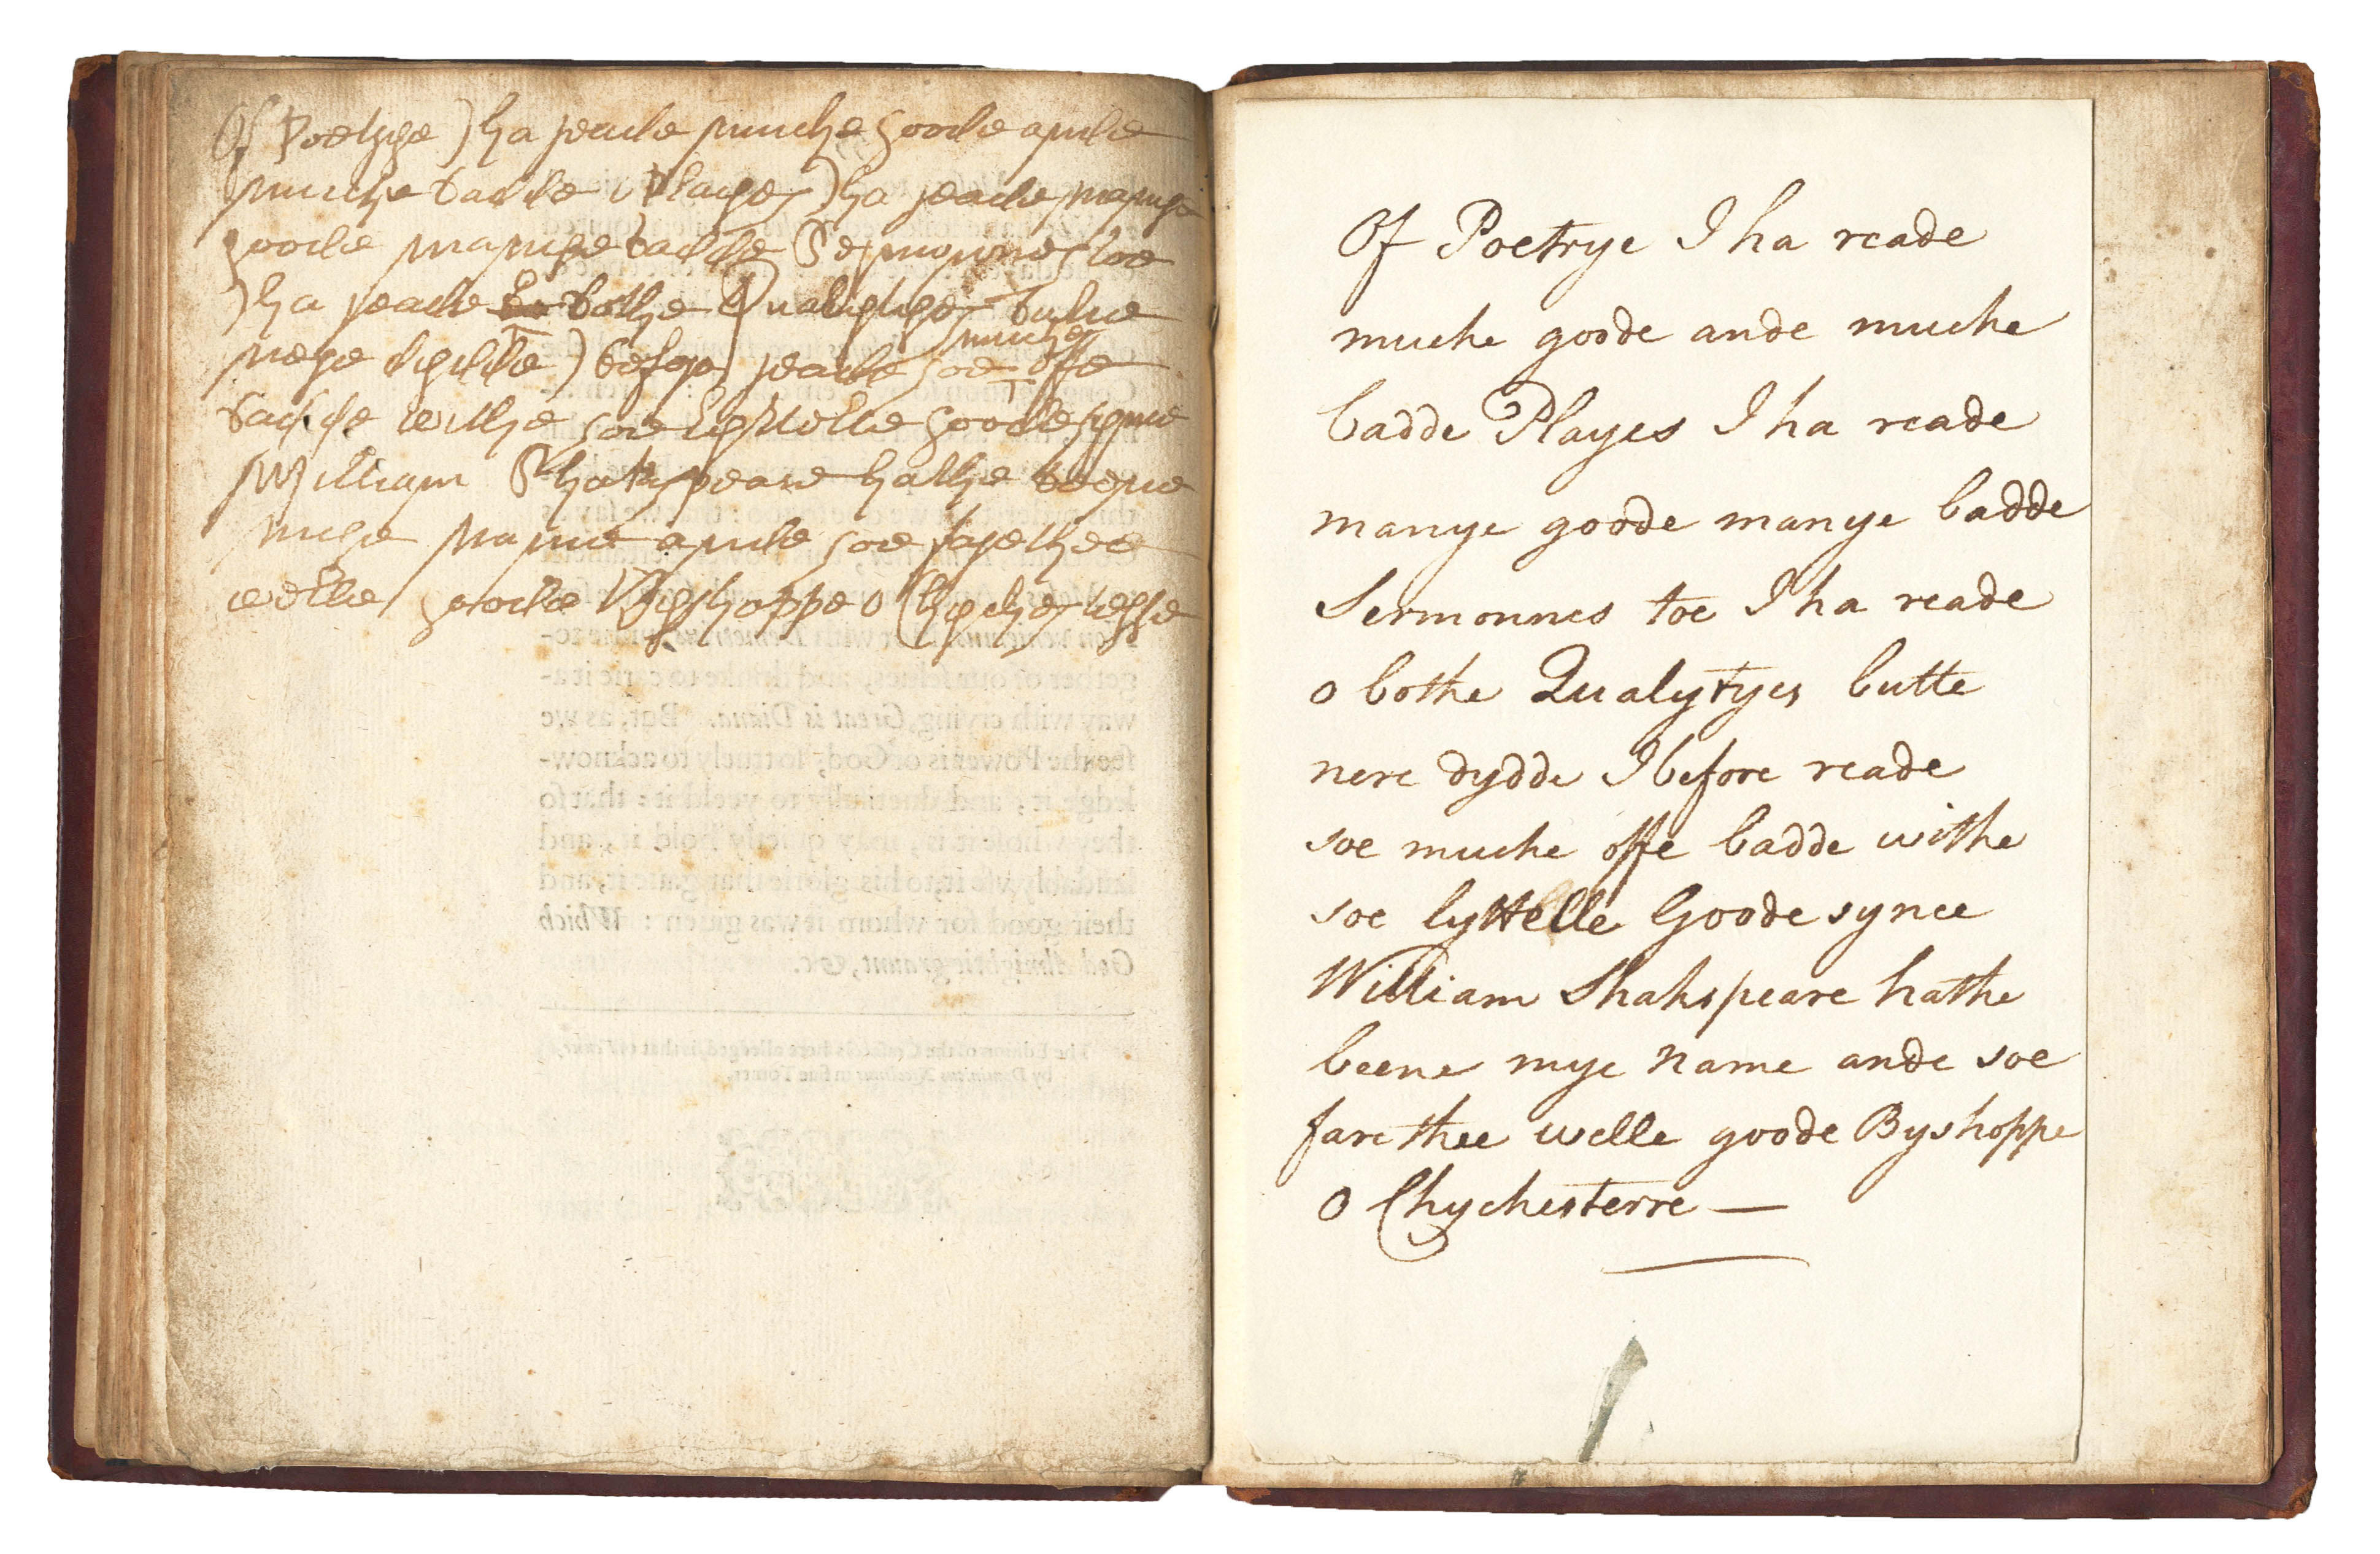 Of Poetrye I ha reade muche goode ande
muche badde Playes I ha reade manye
goode manye badde Sermonnes toe
I ha reade bothe Qualytyes butte
nere dydde I before reade soe muche offe
badde withe soe lyttelle goode synce
William Shakspeare hathe beene
mye name ande soe farethee
welle goode Byshoppe o Chychesterre
Of Poetrye I ha reade
muche goode ande muche
badde Playes I ha reade
manye goode manye badde
Sermonnes toe I ha reade
o bothe Qualytyes butte
nere dydde I before reade
soe muche offe badde withe
soe lyttelle Goode synce
William Shakspeare hathe
beene mye name ande soe
fare thee welle goode Byshoppe
O Chychesterre —